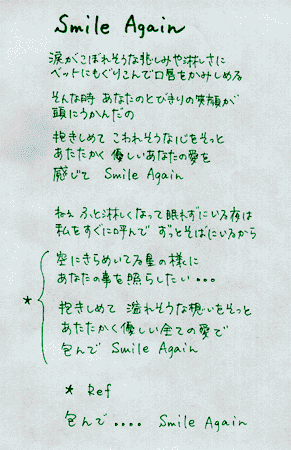 Smile Again
涙がこぼれそうな悲しみや淋しさに
ベットにもぐりこんで口唇をかみしめる
そんな時 あなたのとびきりの笑顔が
頭にうかんだの
抱きしめて こわれそうな心をそっと
あたたかく 優しいあなたの愛を
感じて Smile Again
ねぇ ふと淋しくなって眠れずにいる夜は
私をすぐに呼んで ずっとそばにいるから
空にきらめいてる星の様に
あなたの事を照らしたい・・・
*
抱きしめて 溢れそうな想いをそっと
あたたかく優しい全ての愛で
包んで Smile Again
* Ref
包んで・・・・ Smile Again